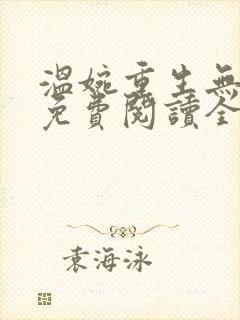 溫婉重生無
免費閱讀全
袁海泳